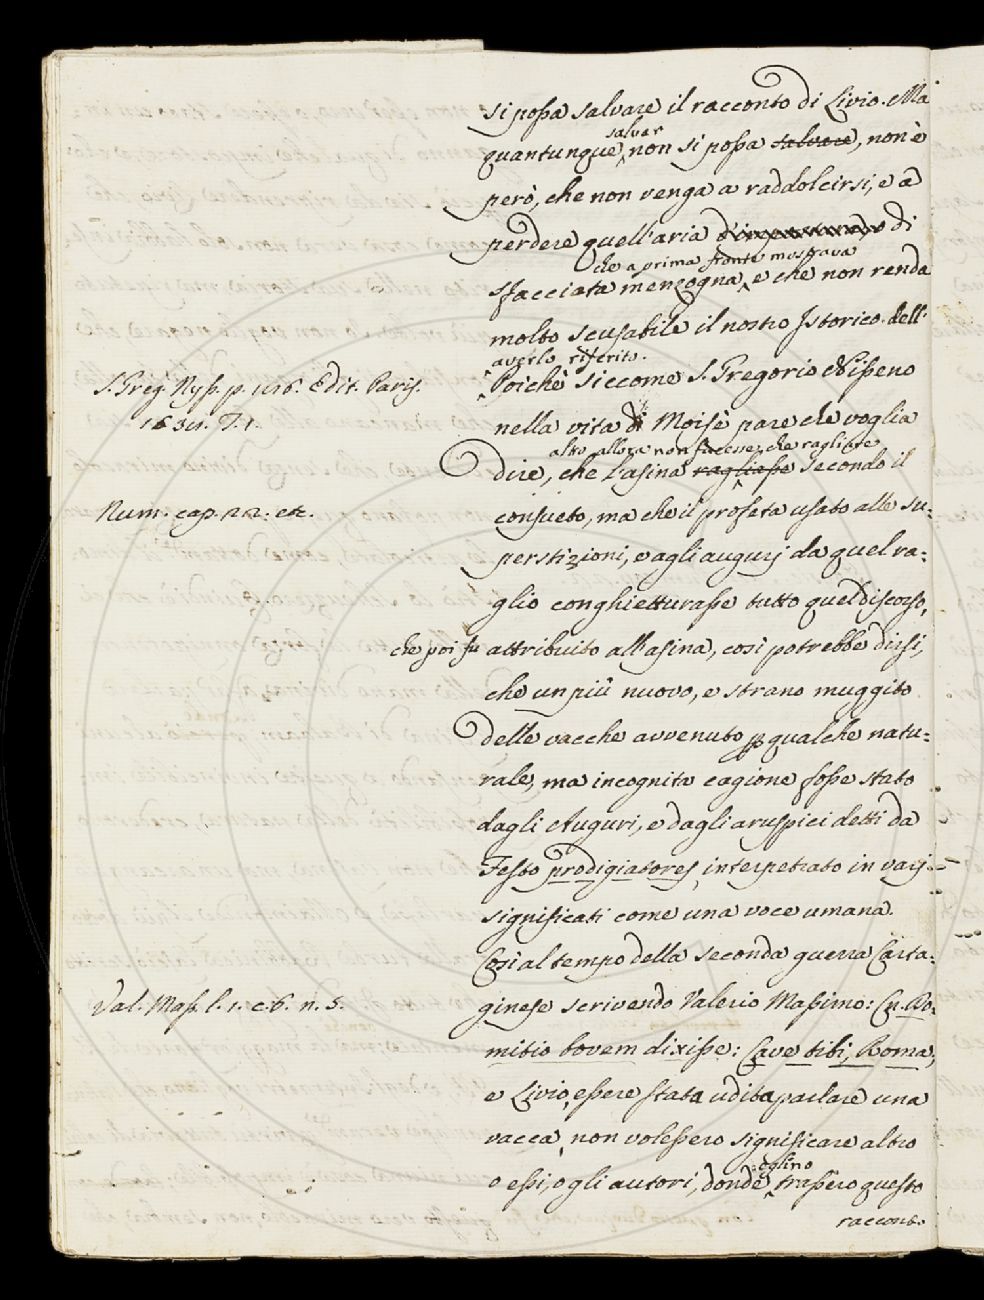 si possa salvare il racconto di Livio. Ma
salvar
quantunque non si possa salvare, non è
però, che non venga a raddolcirsi, e a
perdere quell'aria d'impostura, e di
che a prima fronte mostrava
sfacciata menzogna, e che non renda
molto scusabile il nostro Istorico dell'
averlo riferito.
Poichè siccome S. Gregorio Nisseno
S. Greg. Nyss. p.
Edit. Paris.
nella vita di Moisè pare che voglia
altro allora non facesse, che ragliare
dire, che l'asina ragliasse secondo il
Num. cap. 22. etc.
consueto, ma che il profeta usato alle su:
perstizioni, e agli augurj da quel ra:
glio conghietturasse tutto quel discorso,
che poi fu attribuito all'asina, così potrebbe dirsi,
che un più nuovo, e strano muggito
delle vacche avvenuto per qualche natu:
rale, ma incognita cagione fosse stato
dagli Auguri, e dagli aruspici detti da
Festo prodigiatores, interpetrato in varj
significati come una voce umana.
Così al tempo della seconda guerra Carta:
Val. Mass. l. 1. c. 6. n. 5.
ginese scrivendo Valerio Massimo: Cn. Do:
mitio bovem dixisse: Cave tibi, Roma,
e Livio, essere stata udita parlare una
vacca, non volessero significare altro
eglino
o essi, o gli autori, donde trassero questo
raccont.